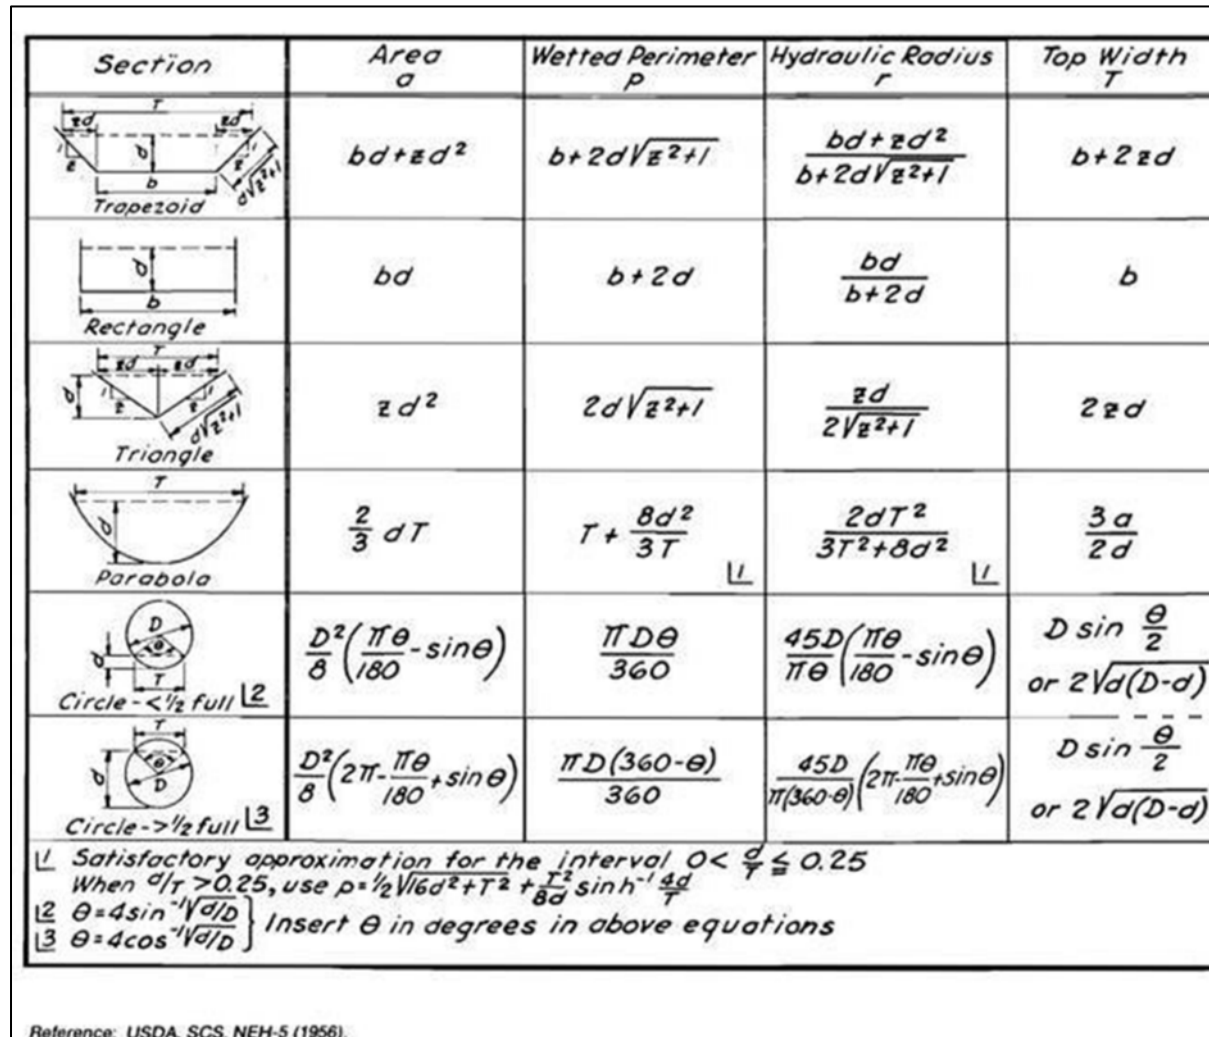 Section Area a Wetted Perimeter p Hydraulic Radius r Top Width T
T
zd zd
1 z d 1 z
b
d√z²+1
Trapezoid
bd+zd² b+2d√z²+1 bd+zd² / b+2d√z²+1 b+2zd
d
b
Rectangle
bd b+2d bd / b+2d b
T
zd zd
d 1 z z 1
d√z²+1
Triangle
zd² 2d√z²+1 zd / 2√z²+1 2zd
T
d
Parabola
2/3 dT T + 8d²/3T ⌊1 2dT² / 3T²+8d² ⌊1 3a/2d
D
θ
d
T
Circle-<1/2 full ⌊2
D²/8 (πθ/180 - sinθ) πDθ/360 45D/πθ (πθ/180 - sinθ) D sin θ/2
or 2√d(D-d)
T
θ
d
D
Circle->1/2 full ⌊3
D²/8 (2π-πθ/180 + sinθ) πD(360-θ)/360 45D/π(360-θ) (2π-πθ/180 + sinθ) D sin θ/2
or 2√d(D-d)
⌊1 Satisfactory approximation for the interval 0< d/T ≦ 0.25
When d/T >0.25, use p=1/2√16d²+T² + T²/8d sinh⁻¹ 4d/T
⌊2 θ=4sin⁻¹√d/D
⌊3 θ=4cos⁻¹√d/D } Insert θ in degrees in above equations
Reference: USDA, SCS, NEH-5 (1956).